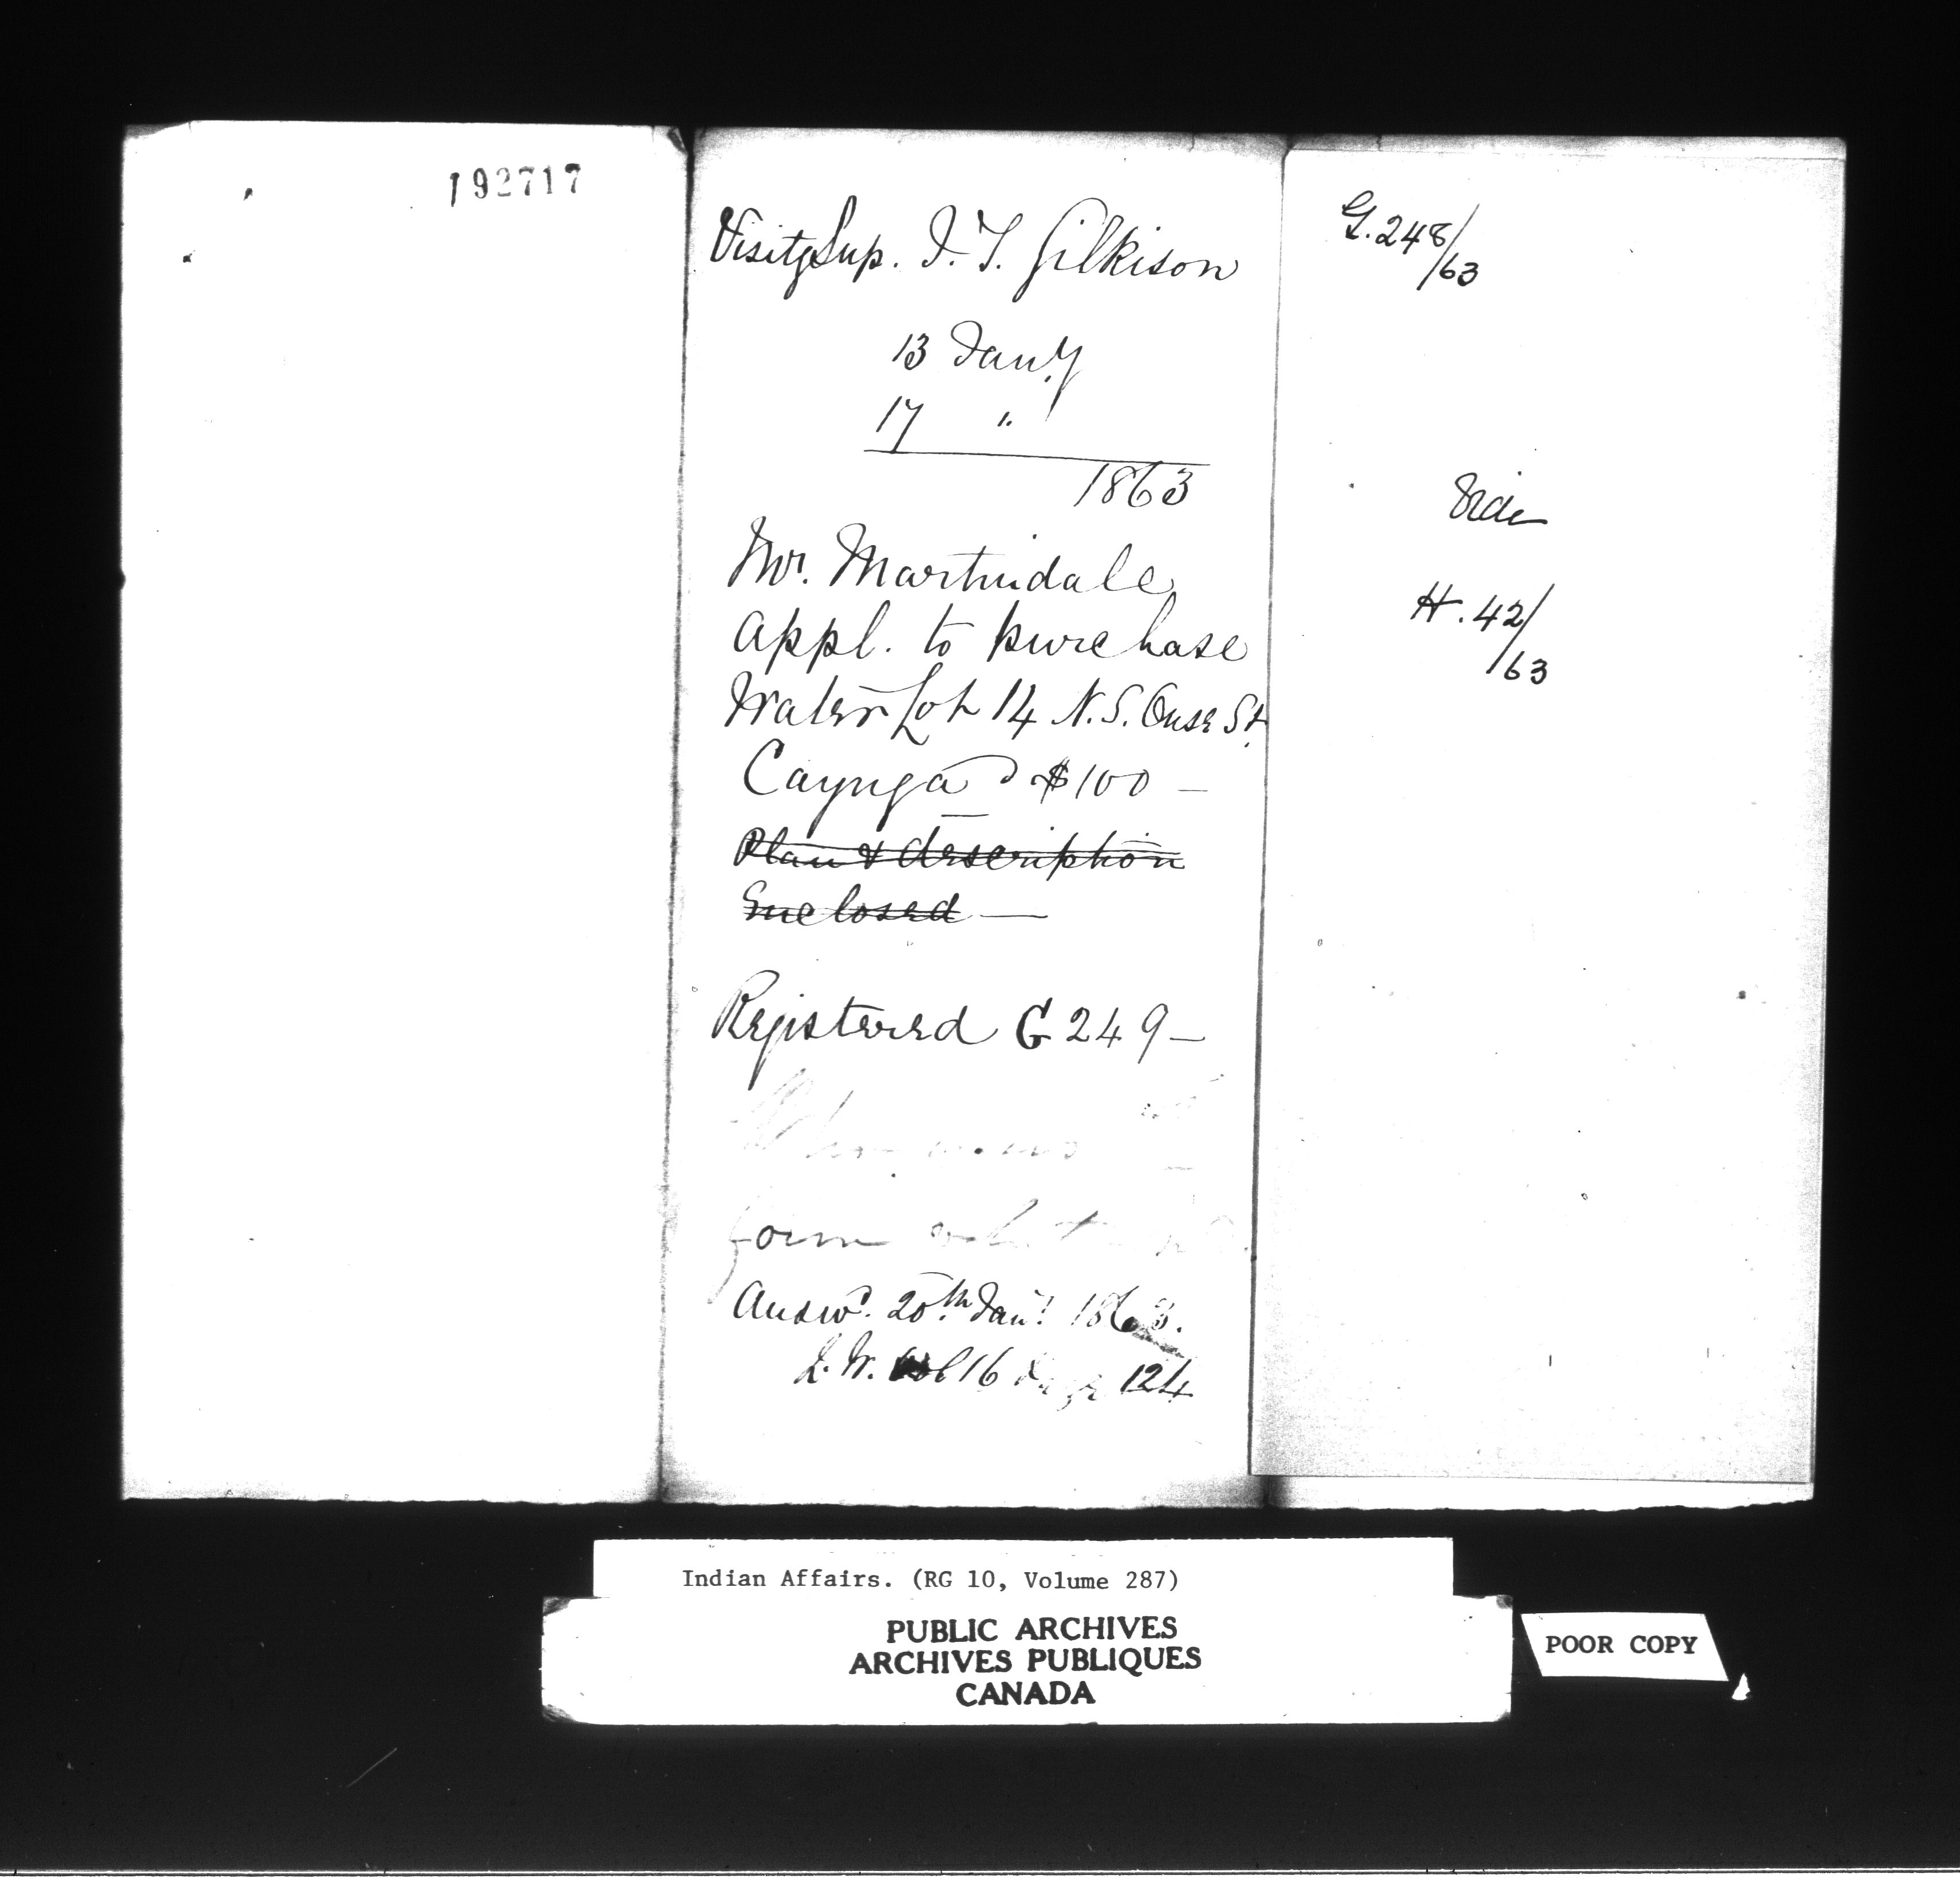 192717
Visitg Sup. J. T. Gilkison
13 Jany.
17 "
1863
Mr. Martindale
appl. to purchase
Water Lot 14 N.S. Ouse St.
Cayuga $100 —
Plan & description
Enclosed —
Registered G 249 —
form
Answd. 20th Jany. 1863.
L.W. Vol 16 Page 124
G. 248/63
Vide
H. 42/
63
Indian Affairs. (RG 10, Volume 287)
PUBLIC ARCHIVES
ARCHIVES PUBLIQUES
CANADA
POOR COPY